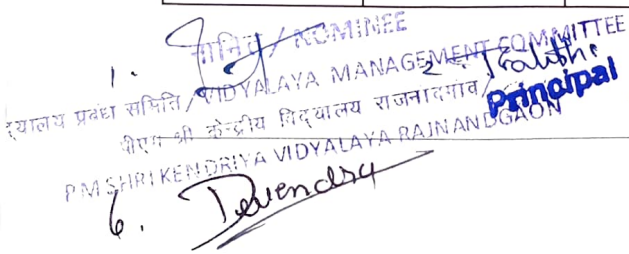 1. नामित / NOMINEE
2.
विद्यालय प्रबंधन समिति / VIDYALAYA MANAGEMENT COMMITTEE
पीएम श्री केन्द्रीय विद्यालय राजनांदगांव / Principal
PM SHRI KENDRIYA VIDYALAYA RAJNANDGAON
6. Devendra